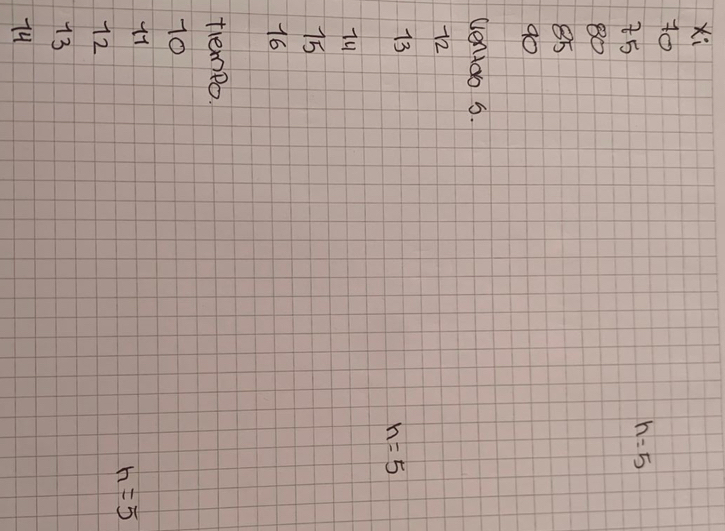 xi
70
75 n=5
80
85
90
llenado s.
12
13 n=5
14
15
16
tiempo.
10
11 n=5
12
13
14